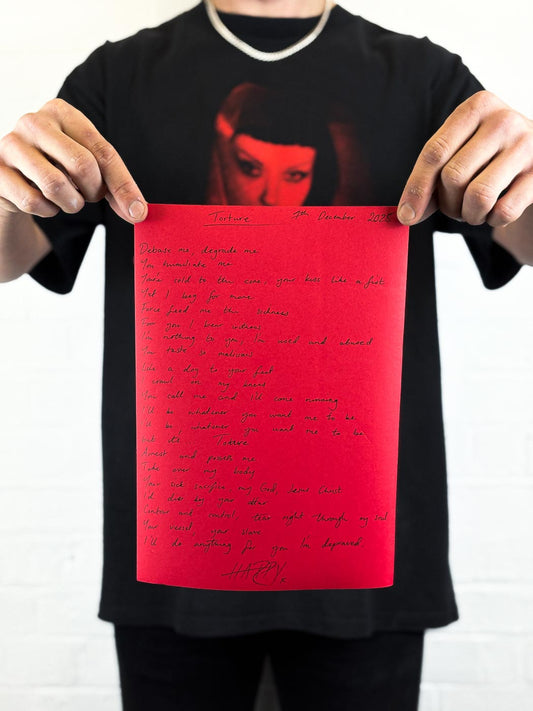 Torture 7th December 2025
Debase me, degrade me
You humiliate me
You're cold to the core, your kiss like a fist
Yet I beg for more
Force feed me this sickness
For you I bear witness
I'm nothing to you, I'm used and abused
Your taste is malicious
Like a dog to your feet
I crawl on my knees
You call me and I'll come running
I'll be whatever you want me to be
I'll be whatever you want me to be
But it's... Torture
Arrest and punish me
Take over my body
Your sick sacrifice my God, Jesus Christ
I'd die by your altar
Contour and control, tear right through my soul
Your vessel, your slave
I'll do anything for you I'm depraved.
HAPPY x